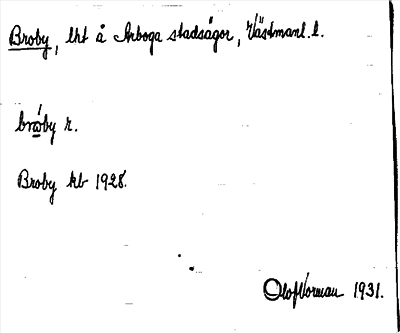 Broby, lht å Arboga stadsägor, Västmanl. l.
bro̱by r.
Broby kb 1928.
Olof Norman 1931.